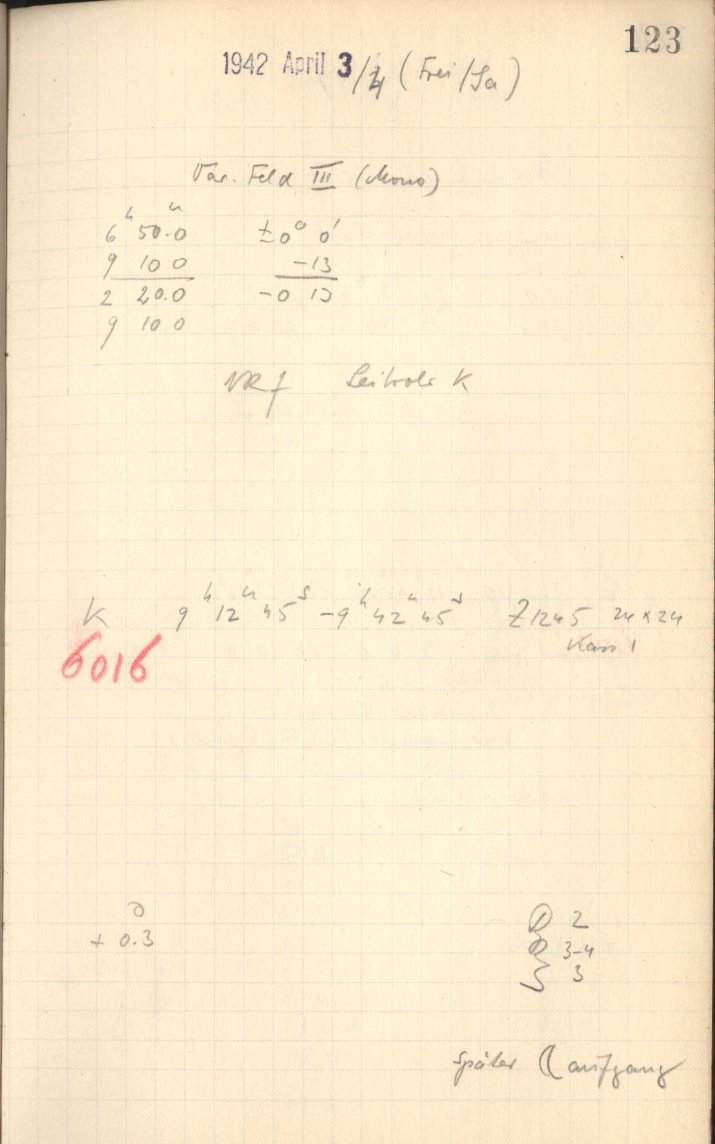 123
1942 April 3/4 (Frei/Sa)
Var. Feld III (Mono)
6ʰ 50.0ᵐ ±0° 0'
9 10 0 -13
2 20.0 -0 13
9 10 0
Leitrohr K
K 9ʰ12ᵐ45ˢ -9ʰ42ᵐ45ˢ Z1245 24x24
Kass 1
6016
+ 0.3
2
3-4
3
später ☾ aufgang